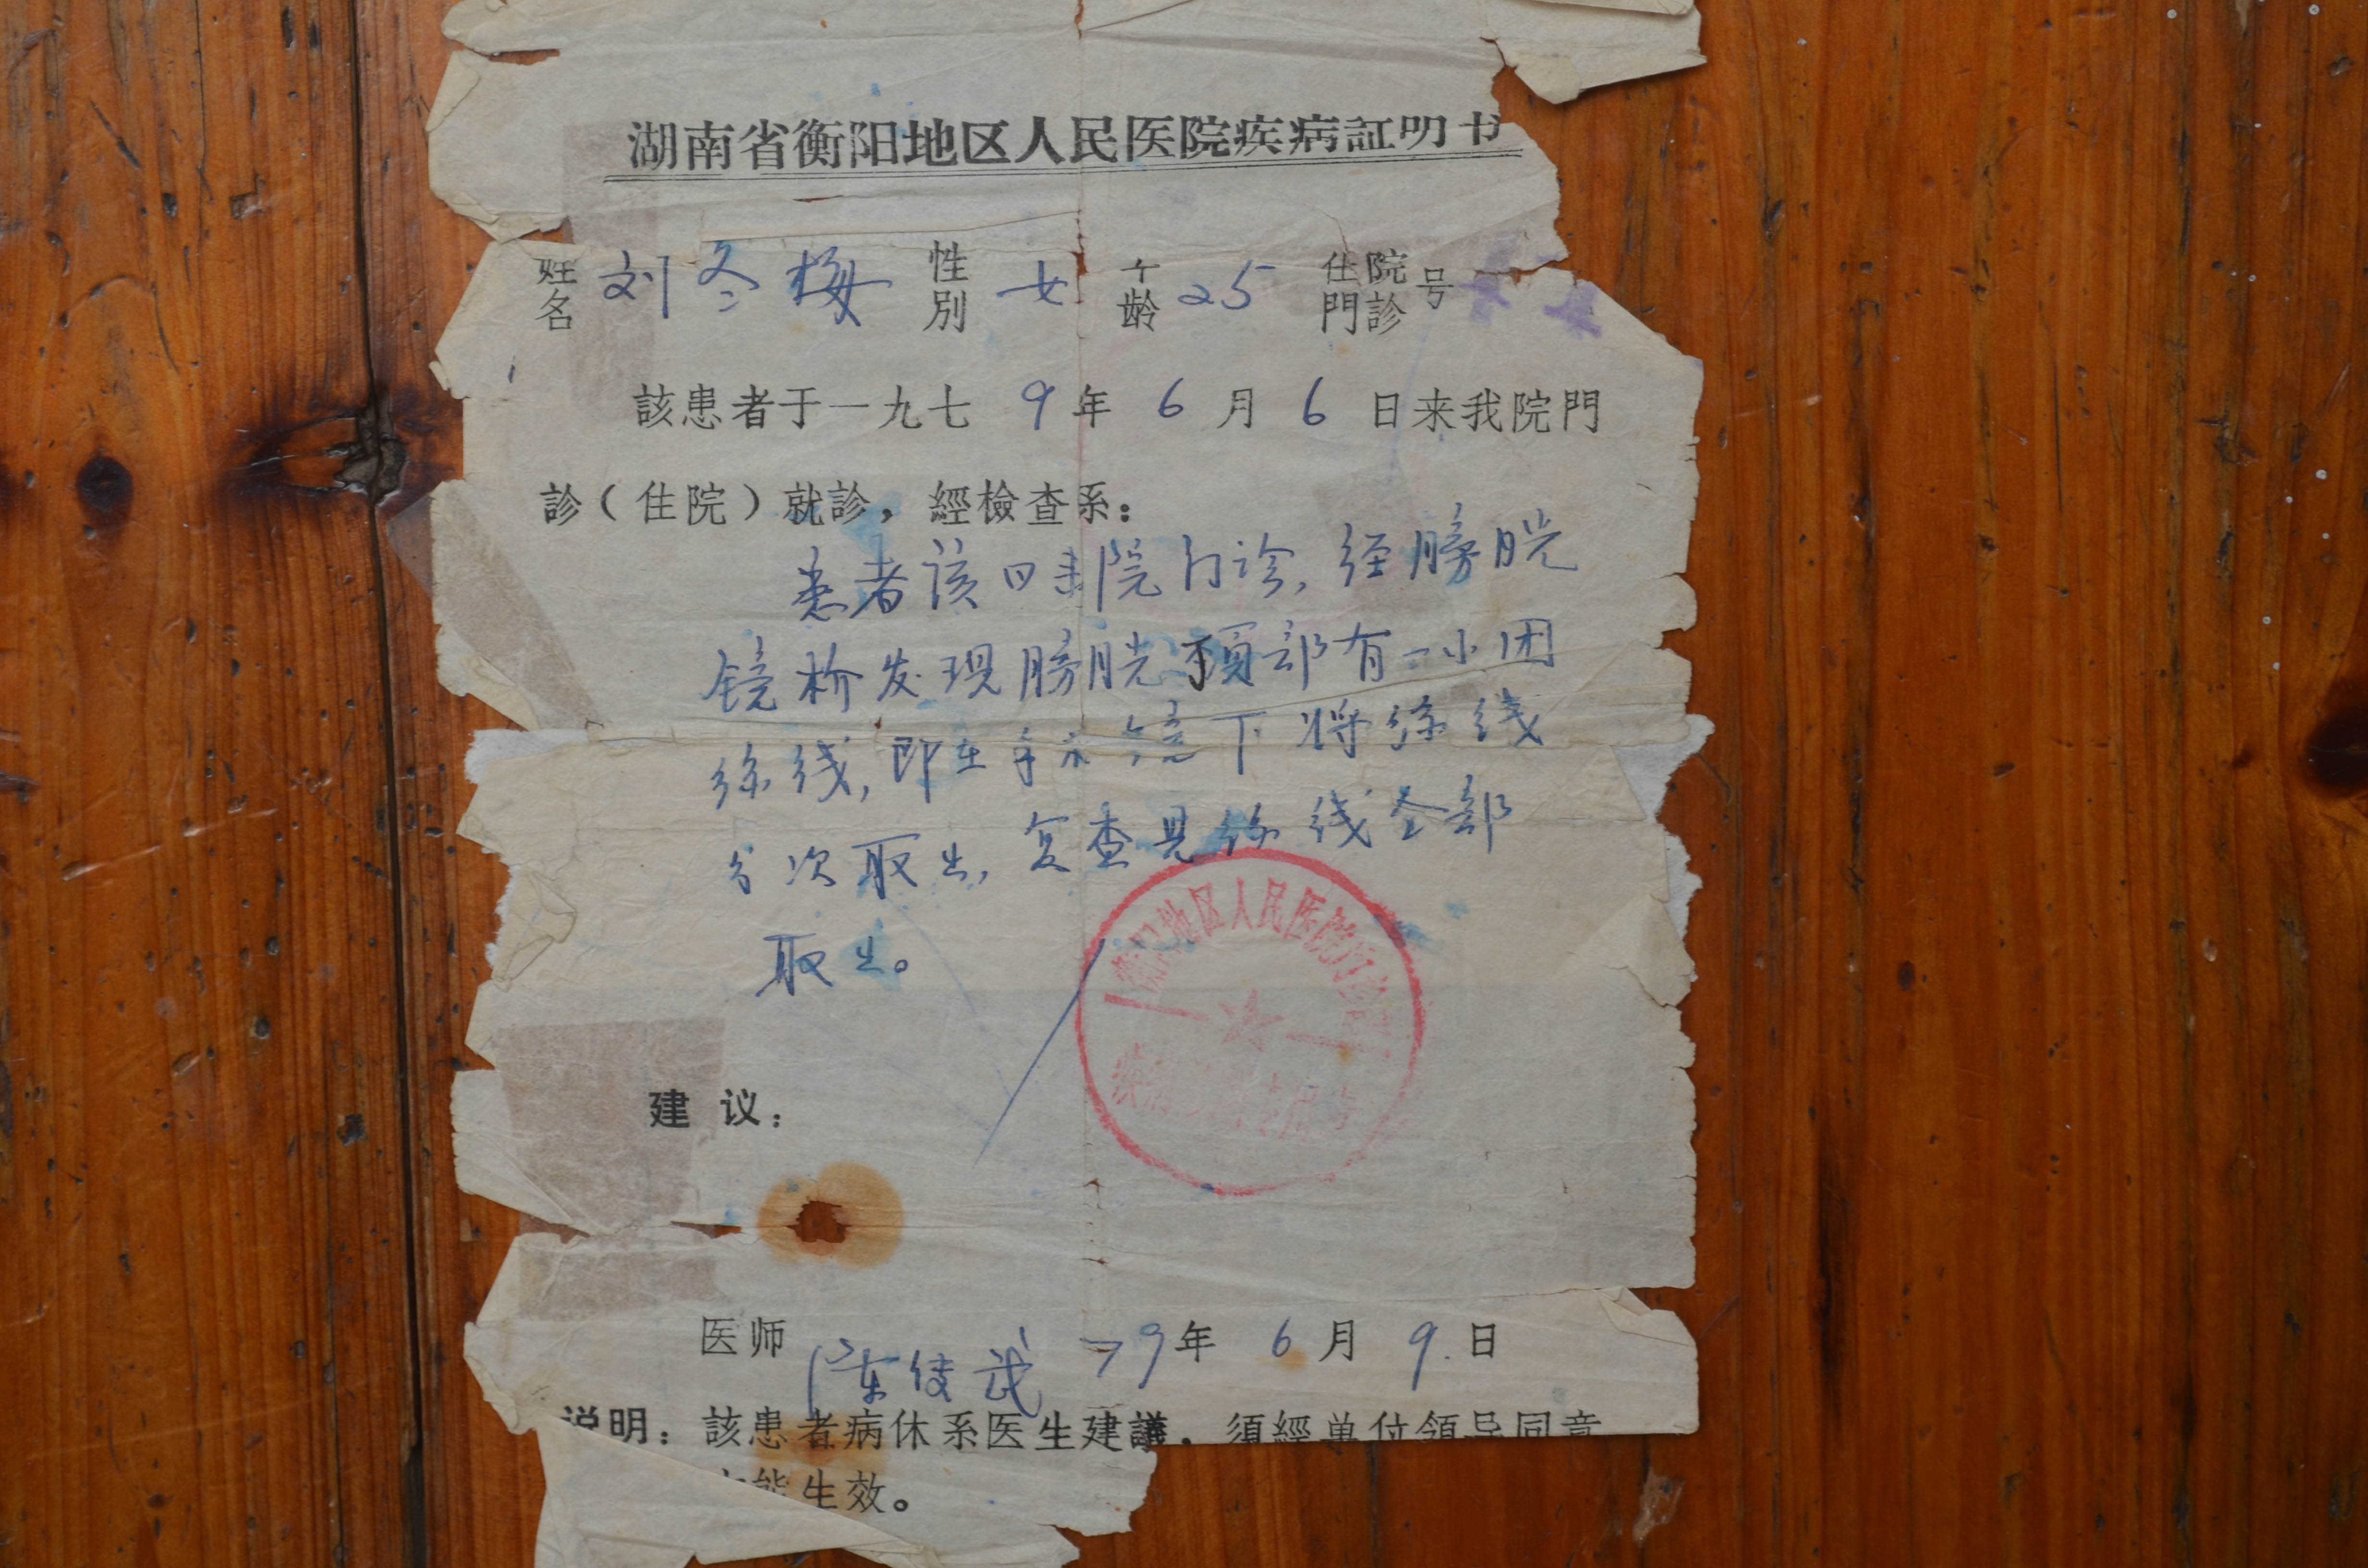 湖南省衡阳地区人民医院疾病証明书
姓名 刘冬梅 性別 女 年龄 25 住院門診号
該患者于一九七9年6月6日来我院門
診（住院）就診，經檢查系：
患者该日来院门诊，经膀胱
镜检发现膀胱顶部有一小团
丝线，即在手术镜下将丝线
分次取出，复查见丝线全部
取出。
地区人民医院
建议：
医师 陈绫武 79年6月9日
说明：該患者病休系医生建議，須經单位領导同意
才能生效。